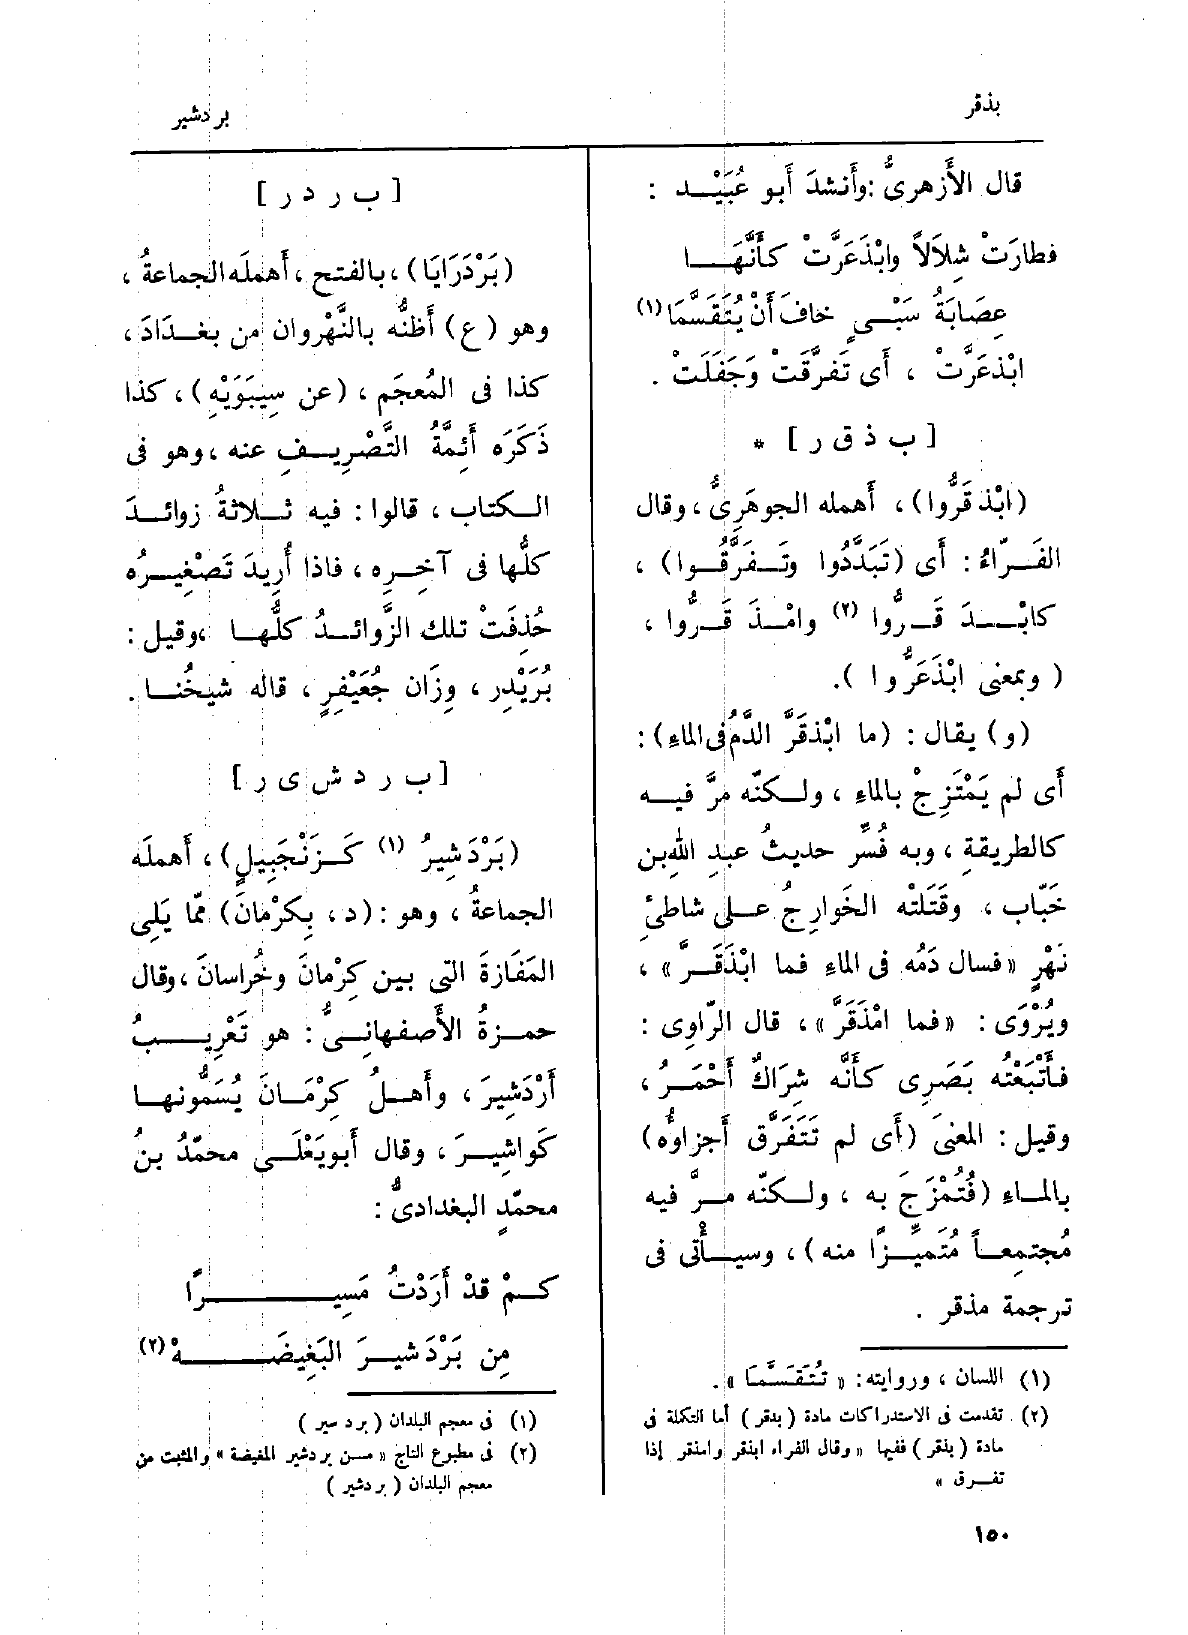 بذقر
بردشير
قال الأَزهرىُّ : وأَنشدَ أَبو عُبَيْد :
فطارَتْ شلاَلاً وابْذَعَرَّتْ كأَنَّهَا
عِصَابَةُ سَبْىٍ خافَ أَنْ يُتَقَسَّمَا (١)
ابْذعَرَّتْ ، أَى تَفرَّقَتْ وَجَفَلَتْ .
[ ب ذ ق ر ] *
(ابْذقَرُّوا) ، أَهمله الجوهَرِىُّ ، وقال
الفَرّاءُ : أَى (تَبَدَّدُوا وتَفرَّقُوا) ،
كابْدَ قَرُّوا (٢) وامْذَ قَرُّوا ،
( وبمعنى ابْذَعَرُّوا ).
(و) يقال : (ما ابْذقَرَّ الدَّمُ فى الماءِ) :
أَى لم يَمْتَزِجْ بالماءِ ، ولكنّه مرَّ فيه
كالطريقةِ ، وبه فُسِّر حديثُ عبدِ اللهِ بن
خَبّاب ، وقَتَلَتْه الخوارجُ على شاطئِ
نَهْرٍ «فسال دَمُه فى الماءِ فما ابْذَقَرَّ» ،
ويُرْوَى : «فما امْذَقَرَّ» ، قال الرّاوِى :
فأَتْبَعْتُه بَصَرِى كأَنَّه شِرَاكٌ أَحْمَرُ ،
وقيل : المعْنَى (أَى لم تَتَفَرَّق أَجزاوُه)
بالماءِ (فتُمْزَجَ به ، ولكنّه مرَّ فيه
مُجتمِعاً مُتَميِّزًا منه) ، وسيأْتى فى
ترجمة مذقر .
(١) اللسان ، وروايته : « تُتَقَسَّمَا » .
(٢) تقدمت فى الاستدراكات مادة ( بدقر ) أما التكلة فى
مادة ( بذقر ) ففيها « وقال الفراء ابذقر وامذقر إذا
تفرق »
[ ب ر د ر ]
(بَرْدَرَايَا) ، بالفتح ، أَهمله الجماعةُ ،
وهو (ع) أَظنُّه بالنَّهْروان من بغدَادَ ،
كذا فى المُعجَم ، (عن سِيبَوَيْهِ) ، كذا
ذَكَرَه أَئِمَّةُ التَّصْرِيفِ عنه ، وهو فى
الكتاب ، قالوا : فيه ثلاثةُ زوائدَ
كلُّها فى آخِرِه ، فاذا أُرِيدَ تَصْغِيرُه
حُذفَتْ تلك الزَّوائدُ كلُّها ، وقيل :
بُرَيْدِر ، وِزَان جُعَيْفِرٍ ، قاله شيخُنا .
[ ب ر د ش ى ر ]
(بَرْدَشِيرُ (١) كزَنْجَبِيلٍ) ، أَهمله
الجماعةُ ، وهو : (د ، بِكرْمَانَ) ممّا يَلِى
المَفَازةَ التى بين كِرْمانَ وخُراسانَ ، وقال
حمزةُ الأَصفهانِىُّ : هو تَعْرِيبُ
أَرْدَشِيرَ ، وأَهلُ كِرْمَانَ يُسَمُّونها
كَواشِيرَ ، وقال أَبو يَعْلَى محمّدُ بنُ
محمّدٍ البغدادىُّ :
كمْ قدْ أَرَدْتُ مَسِيرًا
مِن بَرْدَشيرَ البَغِيضَهْ (٢)
(١) فى معجم البلدان ( برد سير )
(٢) فى مطبوع التاج « من بردشير المغيضة » والمثبت من
معجم البلدان ( بردشير )
١٥٠